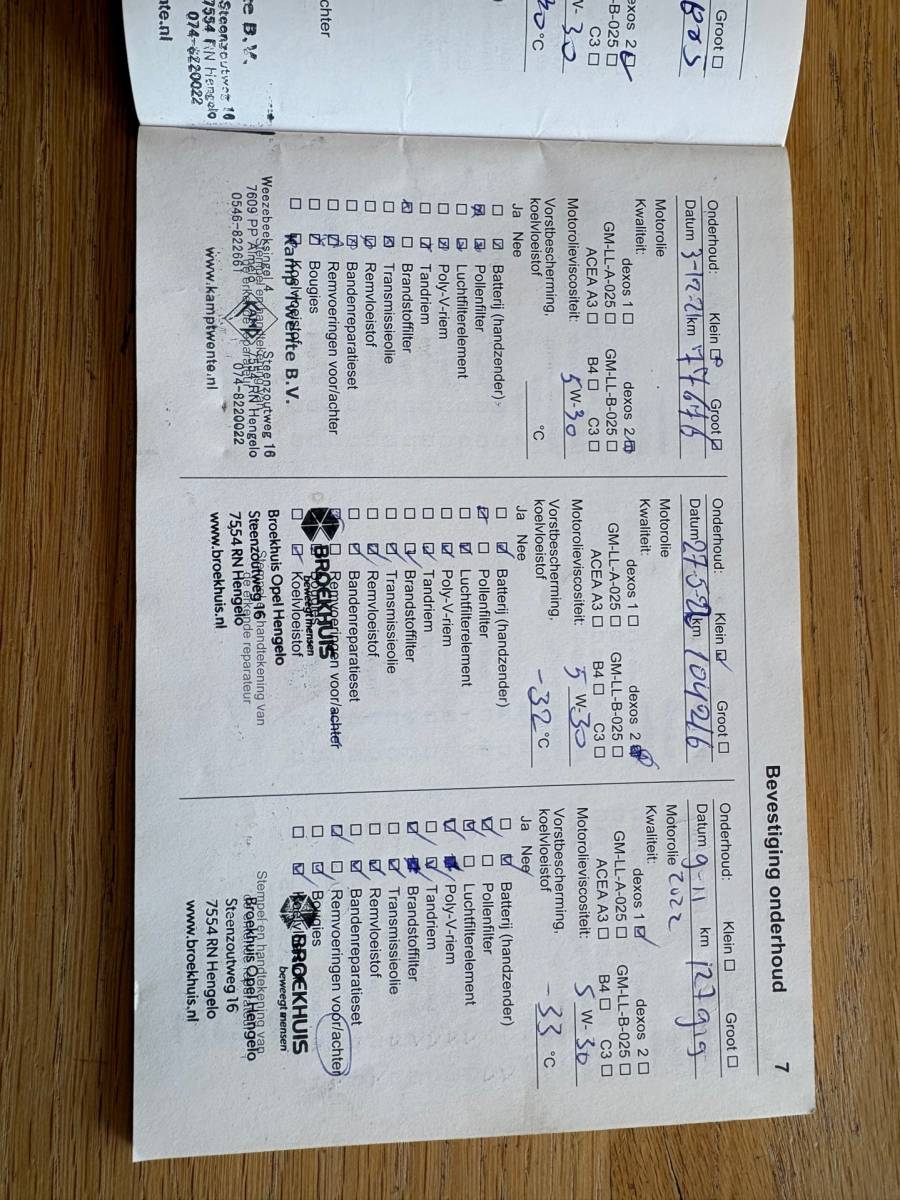 Groot
Brs
dexos 2
GM-LL-B-025
C3
W-30
30 °C
achter
e B.V.
Steenzoutweg 16
7554 RN Hengelo
074-8220022
nte.nl
Bevestiging onderhoud
7
Onderhoud: Klein Groot
Datum 3-12-21 km 77676
Motorolie
Kwaliteit: dexos 1 dexos 2
GM-LL-A-025 GM-LL-B-025
ACEA A3 B4 C3
Motorolieviscositeit: 5W-30
Vorstbescherming,
koelvloeistof °C
Ja Nee
Batterij (handzender)
Pollenfilter
Luchtfilterelement
Poly-V-riem
Tandriem
Brandstoffilter
Transmissieolie
Remvloeistof
Bandenreparatieset
Remvoeringen voor/achter
Bougies
Koelvloeistof
Kamp Twente B.V.
Weezebeeksingel 4 Steenzoutweg 16
7609 PP Almelo KAMP 7554 RN Hengelo
0546-822661 074-8220022
www.kamptwente.nl
Onderhoud: Klein Groot
Datum 27-5-22 km 104216
Motorolie
Kwaliteit: dexos 1 dexos 2
GM-LL-A-025 GM-LL-B-025
ACEA A3 B4 C3
Motorolieviscositeit: 5 W-30
Vorstbescherming,
koelvloeistof -32 °C
Ja Nee
Batterij (handzender)
Pollenfilter
Luchtfilterelement
Poly-V-riem
Tandriem
Brandstoffilter
Transmissieolie
Remvloeistof
Bandenreparatieset
Remvoeringen voor/achter
Bougies
Koelvloeistof
BROEKHUIS
beweegt mensen
Stempel en handtekening van
de erkende reparateur
Broekhuis Opel Hengelo
Steenzoutweg 16
7554 RN Hengelo
www.broekhuis.nl
Onderhoud: Klein Groot
Datum 9-11 km 127919
Motorolie 2022
Kwaliteit: dexos 1 dexos 2
GM-LL-A-025 GM-LL-B-025
ACEA A3 B4 C3
Motorolieviscositeit: 5 W-30
Vorstbescherming,
koelvloeistof -33 °C
Ja Nee
Batterij (handzender)
Pollenfilter
Luchtfilterelement
Poly-V-riem
Tandriem
Brandstoffilter
Transmissieolie
Remvloeistof
Bandenreparatieset
Remvoeringen voor/achter
Bougies
Koelvloeistof
BROEKHUIS
beweegt mensen
Stempel en handtekening van
Broekhuis Opel Hengelo
Steenzoutweg 16
7554 RN Hengelo
www.broekhuis.nl